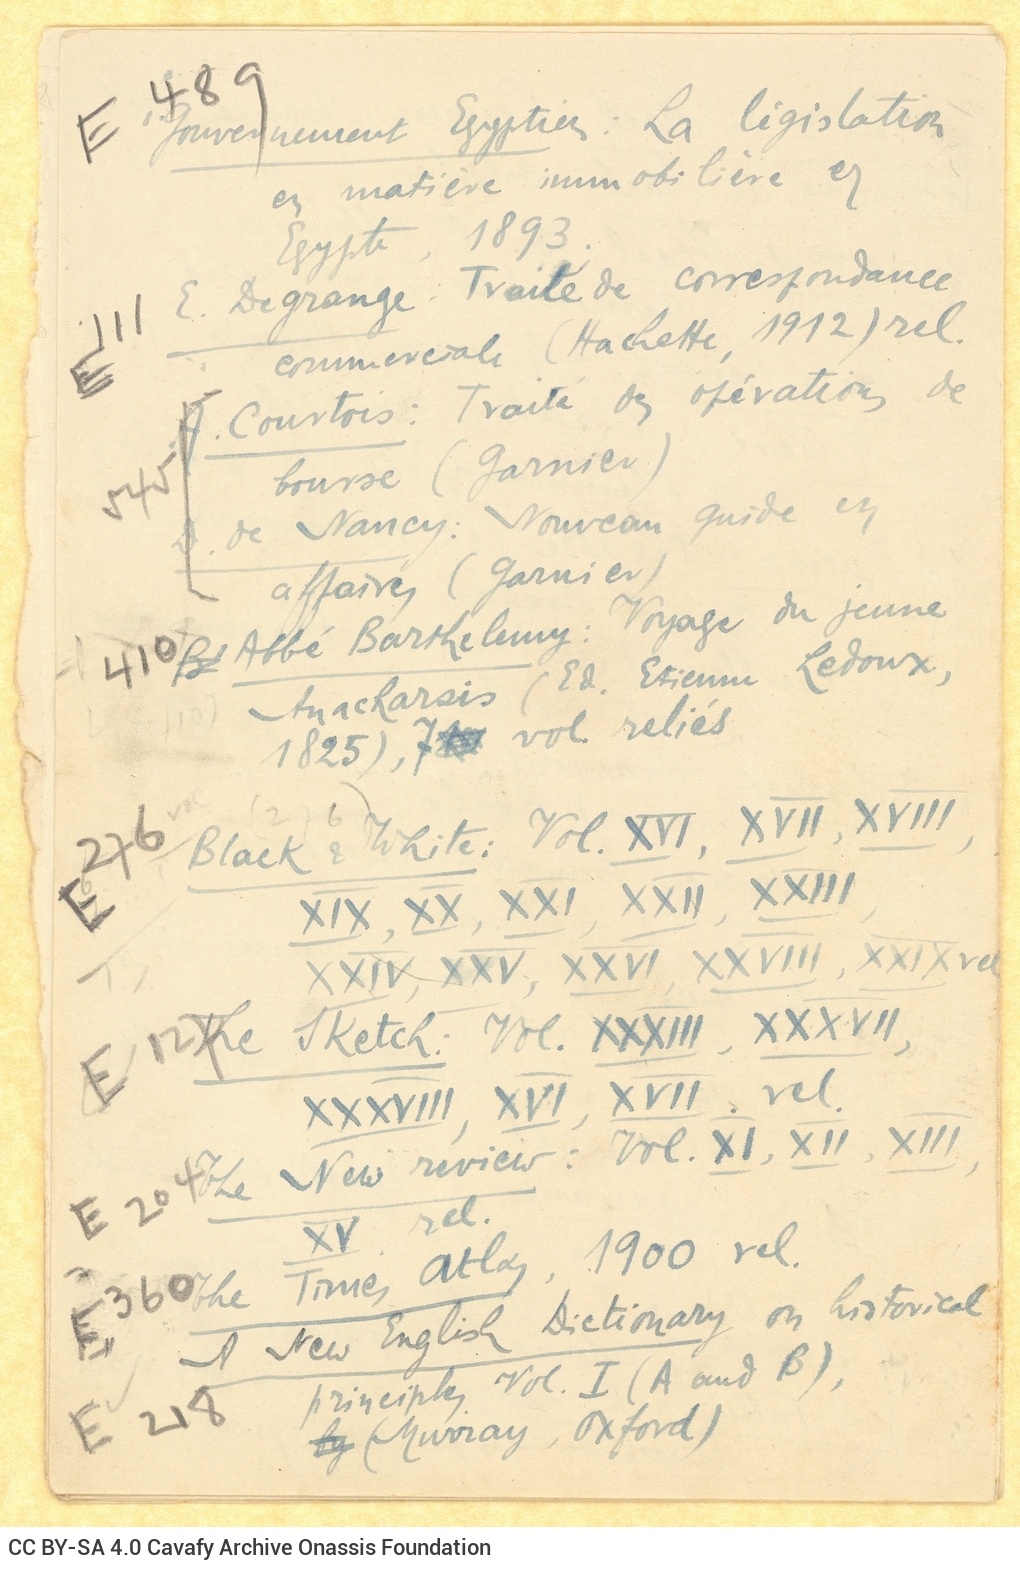 E 489 Gouvernement Egyptien: La législation
en matière immobilière en
Egypte, 1893.
E 111 E. Degrange: Traité de correspondance
commerciale (Hachette, 1912) rel.
545 A. Courtois: Traité des opérations de
bourse (Garnier)
D. de Nancy: Nouveau guide en
affaires (Garnier)
410 Abbé Barthelemy: Voyage du jeune
Anacharsis (Ed. Etienne Ledoux,
1825), 7 vol. reliés
(276)
E 276 Black & White: Vol. XVI, XVII, XVIII,
XIX, XX, XXI, XXII, XXIII,
XXIV, XXV, XXVI, XXVIII, XXIX rel
E 127 The Sketch: Vol. XXXIII, XXXVII,
XXXVIII, XVI, XVII. rel.
E 204 The New review: Vol. XI, XII, XIII,
XV. rel.
E 360 The Times atlas, 1900 rel.
A New English Dictionary on historical
E 218 principles Vol. I (A and B),
by (Murray, Oxford)
CC BY-SA 4.0 Cavafy Archive Onassis Foundation